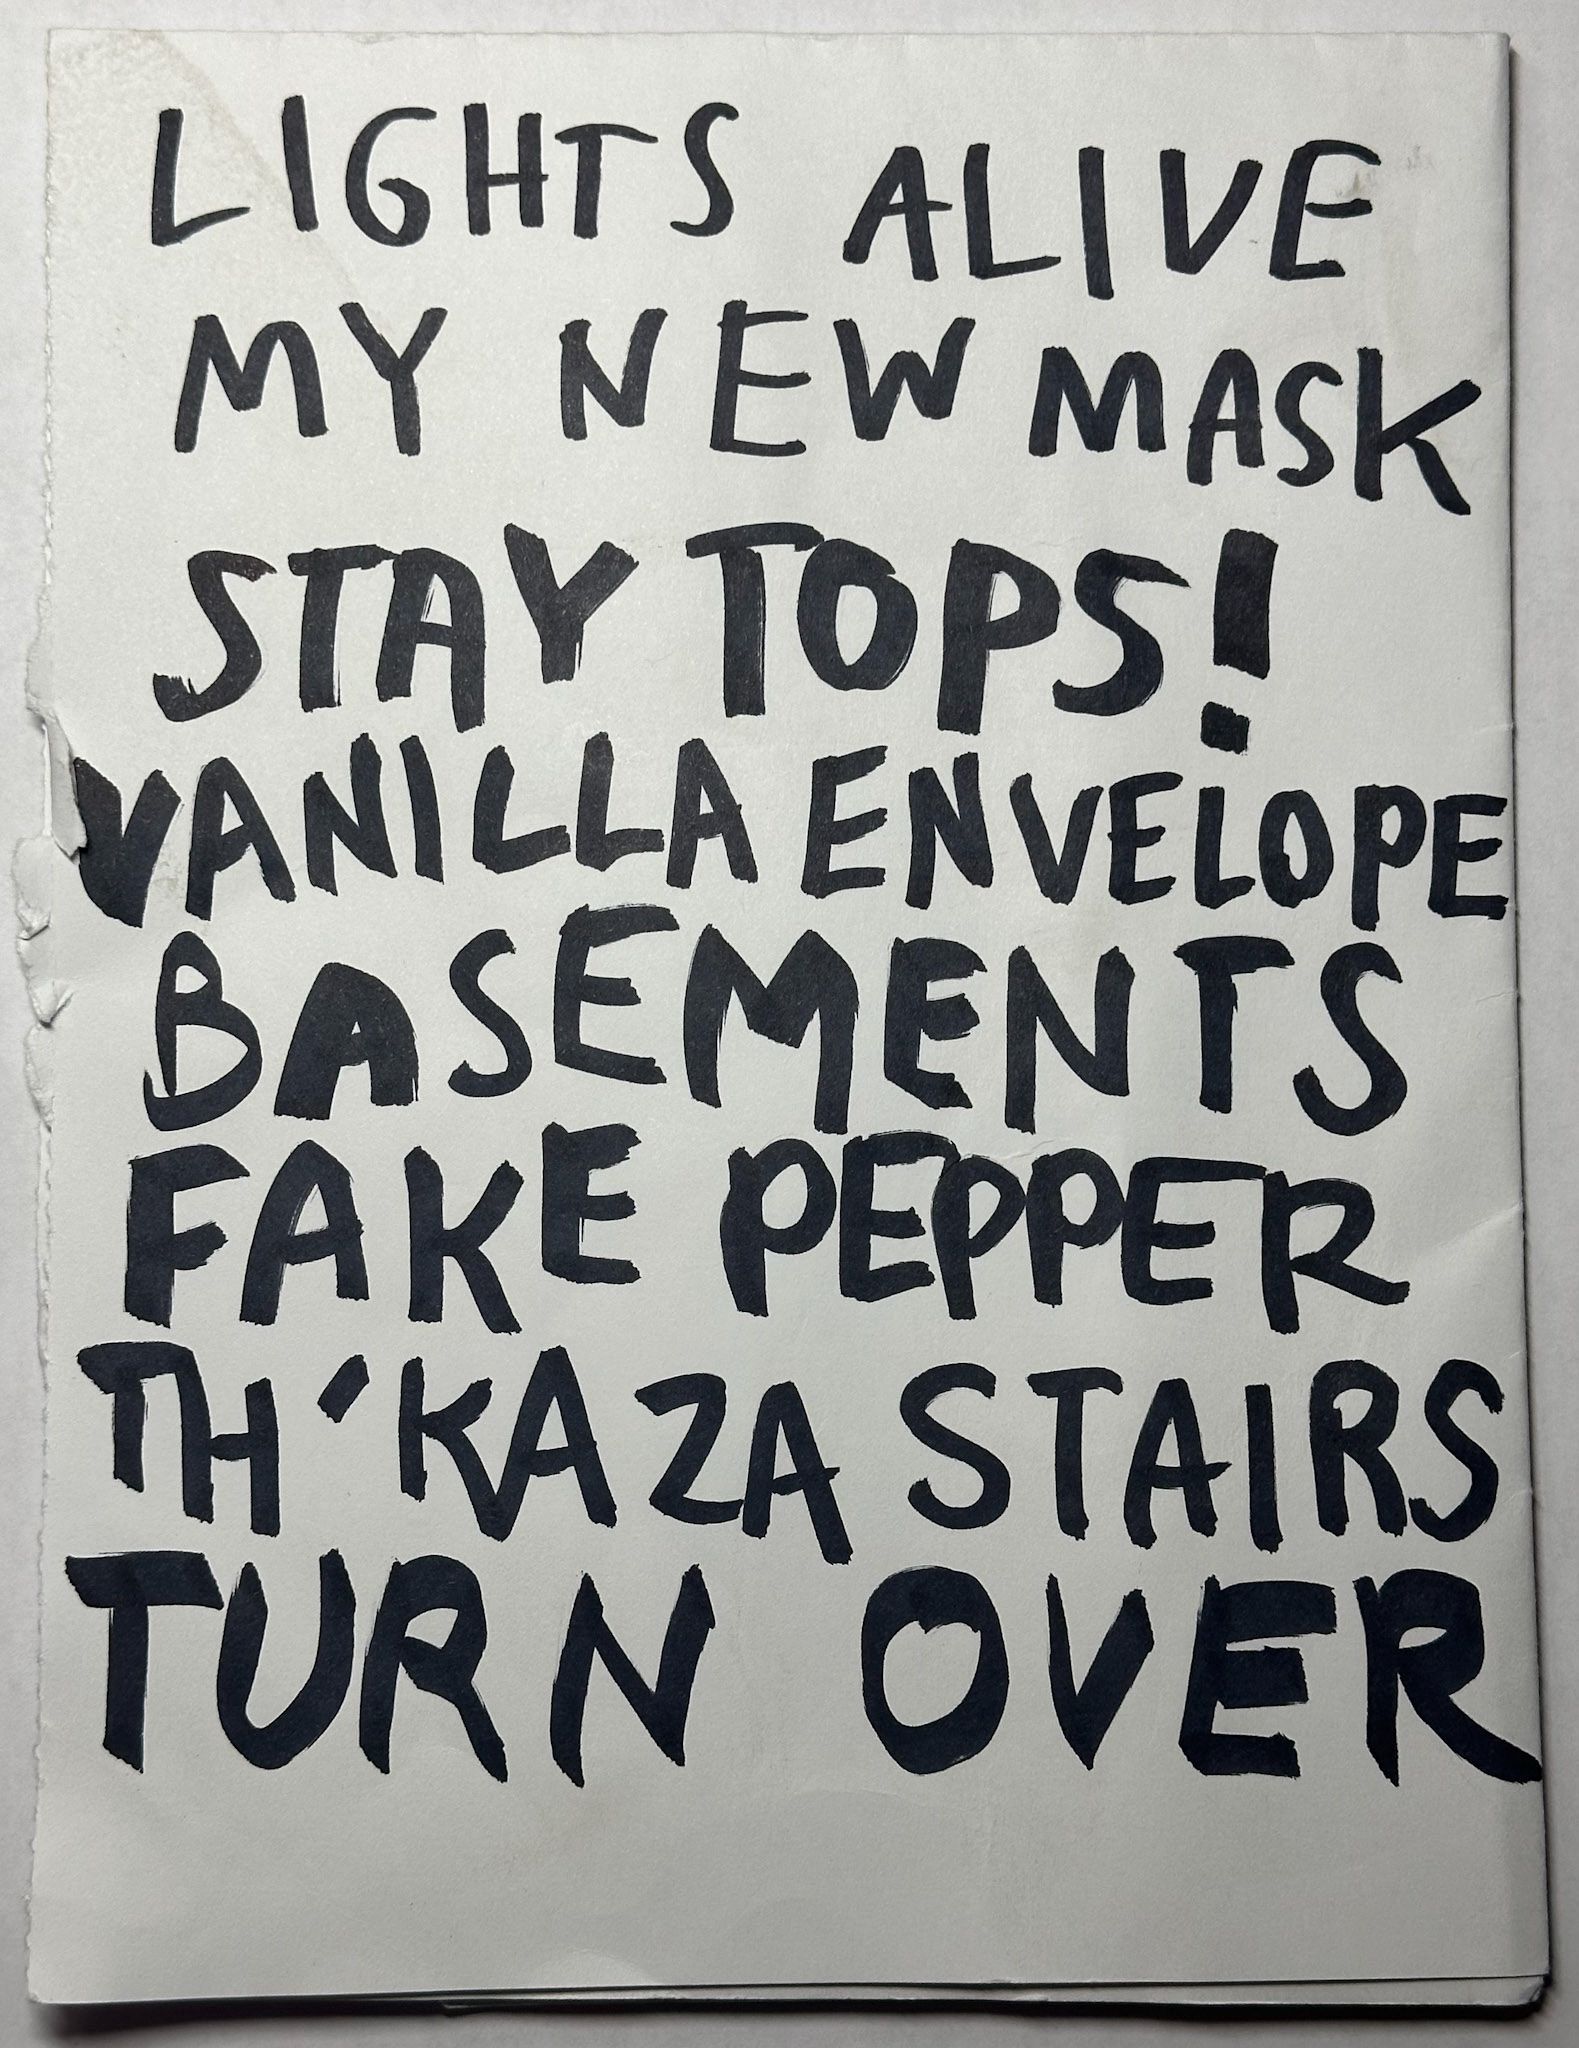 LIGHTS ALIVE
MY NEW MASK
STAY TOPS!
VANILLA ENVELOPE
BASEMENTS
FAKE PEPPER
TH'KAZA STAIRS
TURN OVER